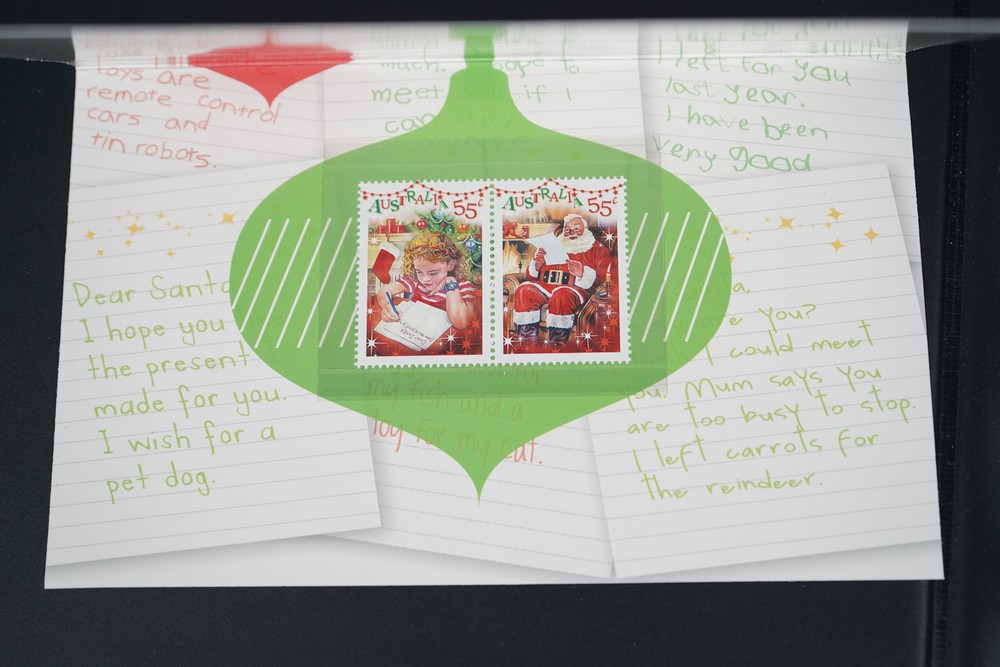 Toys are
remote control
cars and
tin robots.
much. hope to
meet you if I
can
I left for you
last year.
I have been
very good
AUSTRALIA 55c
AUSTRALIA 55c
Dear Santa
I hope you
the present
made for you.
I wish for a
pet dog.
my fish and a
toy for my cat.
you?
I could meet
you. Mum says you
are too busy to stop.
I left carrots for
the reindeer.